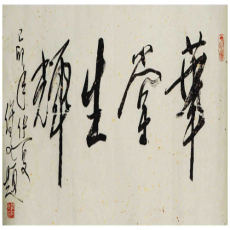 華堂生輝
己卯年仲夏
題